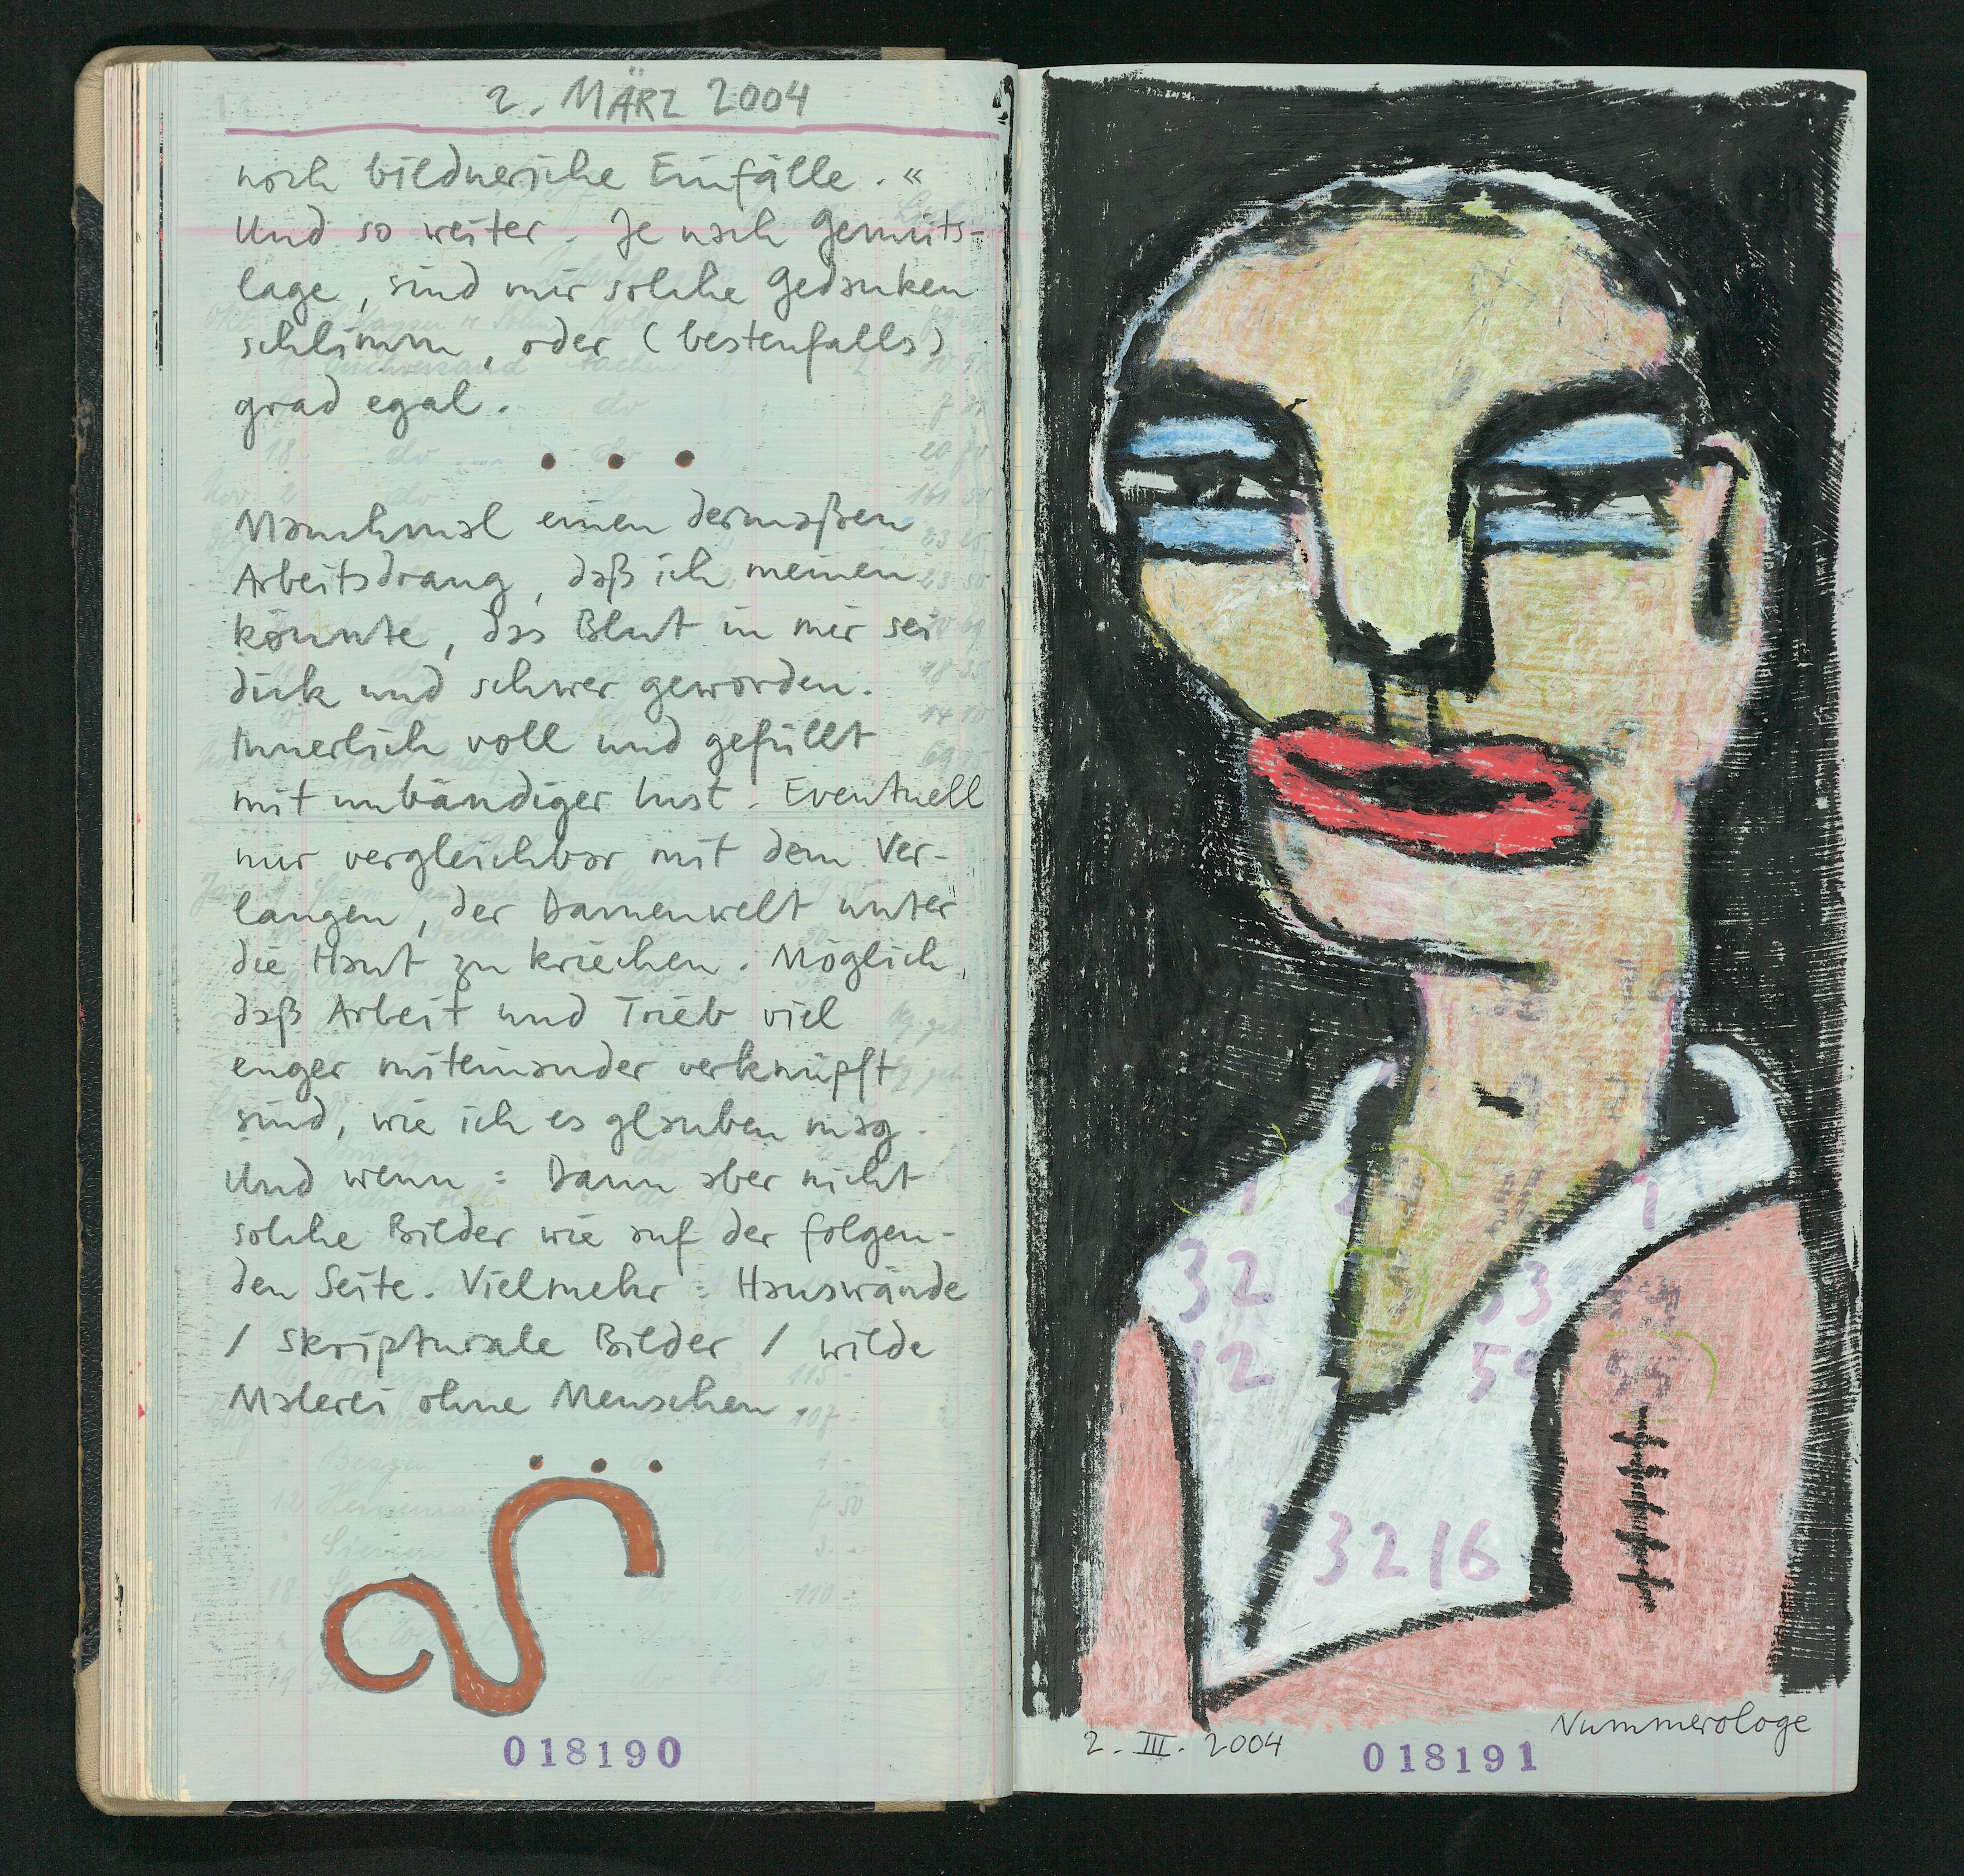 2. MÄRZ 2004
noch bildnerische Einfälle. «
Und so weiter. Je nach Gemüts-
lage, sind mir solche Gedanken
schlimm, oder (bestenfalls)
grad egal.
Manchmal einen dermaßen
Arbeitsdrang, daß ich meinen
könnte, das Blut in mir sei
dick und schwer geworden.
Innerlich voll und gefüllt
mit unbändiger Lust. Eventuell
nur vergleichbar mit dem Ver-
langen, der Damenwelt unter
die Haut zu kriechen. Möglich,
daß Arbeit und Trieb viel
enger miteinander verknüpft
sind, wie ich es glauben mag.
Und wenn: Dann aber nicht
solche Bilder wie auf der folgen-
den Seite. Vielmehr: Hauswände
/ skripturale Bilder / wilde
Malerei ohne Menschen.
018190
1
32
12
53
59
3216
2. III. 2004
018191
Nummerologe